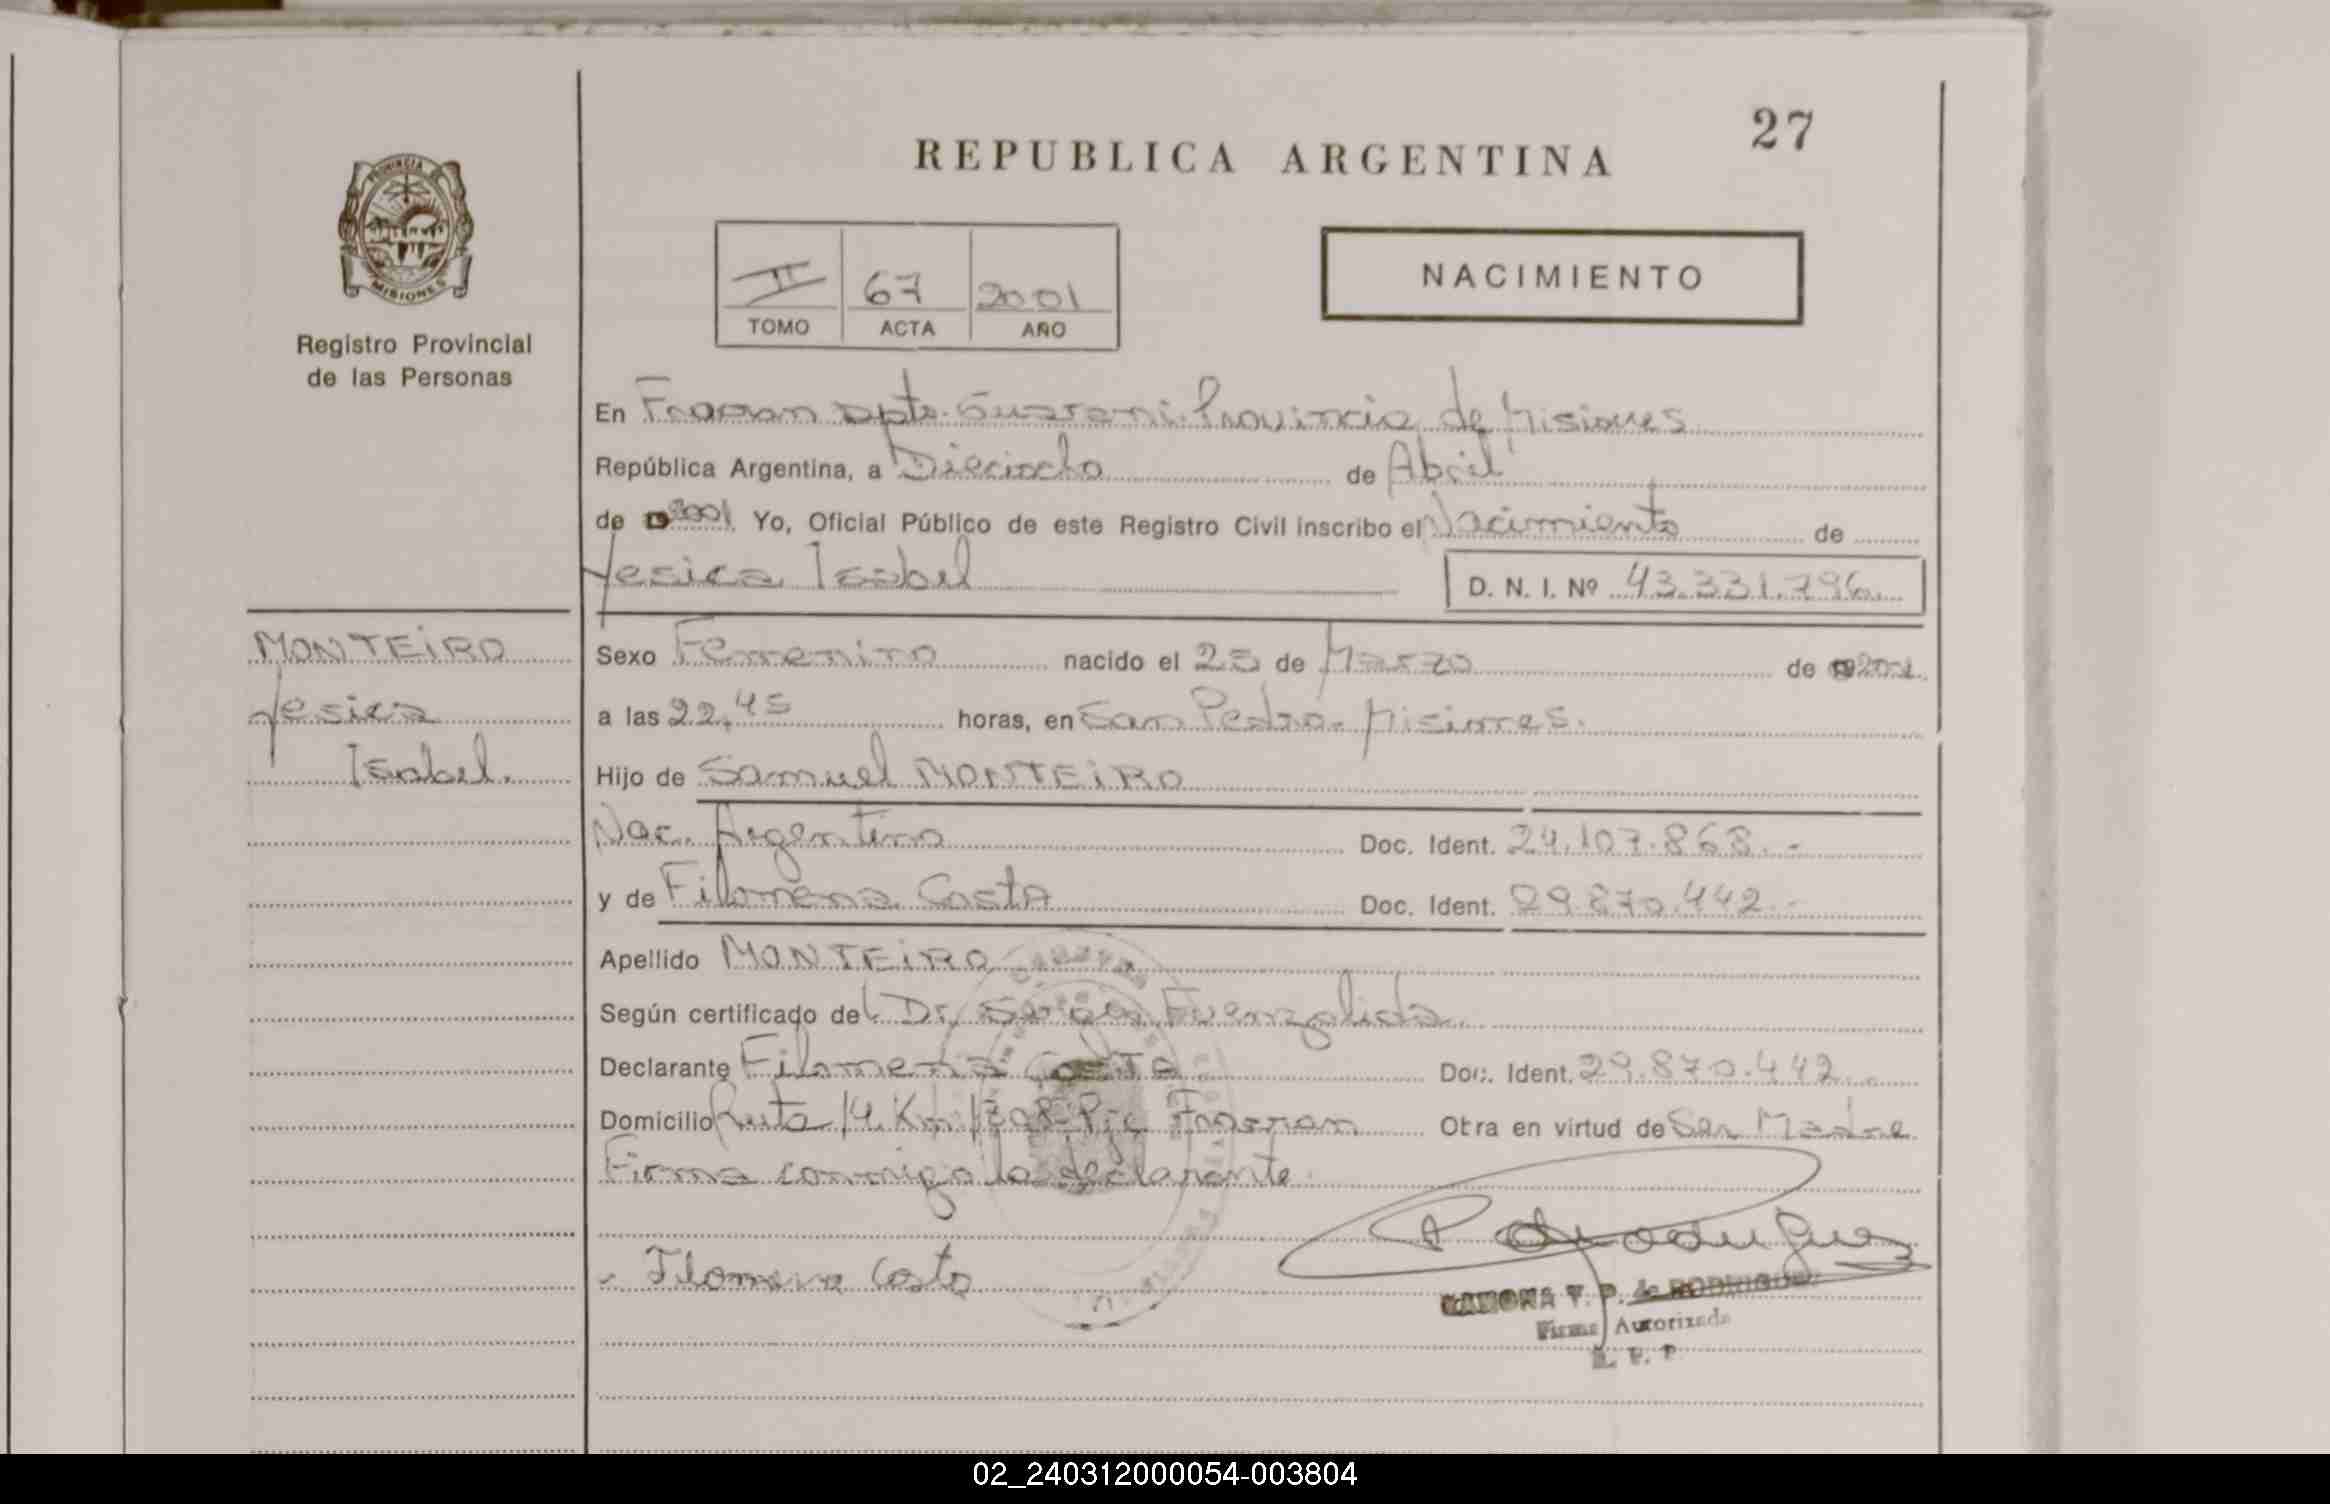 27
REPUBLICA ARGENTINA
PROVINCIA DE
MISIONES
Registro Provincial
de las Personas
II 67 2001
TOMO ACTA AÑO
NACIMIENTO
En Fracran Dpto. Guarani. Provincia de Misiones
República Argentina, a Dieciocho de Abril
de 2001 Yo, Oficial Público de este Registro Civil inscribo el Nacimiento de
Yesica Isabel
D. N. I. Nº 43.331.796.
MONTEIRO
Yesica
Isabel.
Sexo Femenino nacido el 25 de Marzo de 2001
a las 22,45 horas, en San Pedro. Misiones.
Hijo de Samuel MONTEIRO
Nac. Argentino Doc. Ident. 24.107.868.-
y de Filomena Costa Doc. Ident. 29.870.442.-
Apellido MONTEIRO
Según certificado del Dr. Fuenzalida
Declarante Filomena Costa Doc. Ident. 29.870.442.-
Domicilio Ruta 14. Km Fracran Otra en virtud de Ser Madre
Firma conmigo la declarante.
Filomena Costa
RAMONA T. P. de RODRIGUEZ
Firma Autorizada
R. P. P.
02_240312000054-003804